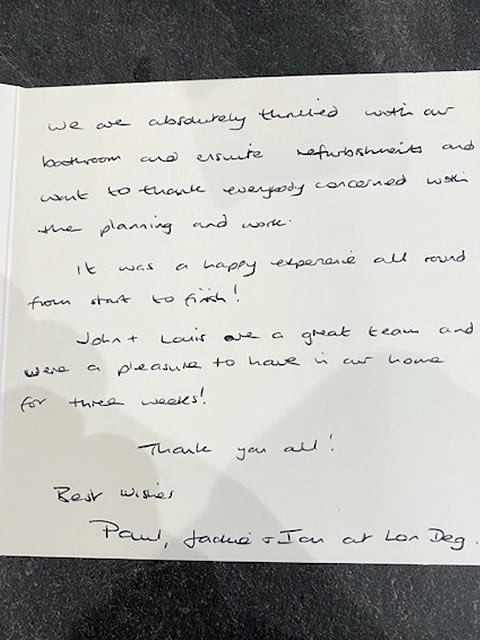 We are absolutely thrilled with our
bathroom and ensuite refurbishments and
want to thank everybody concerned with
the planning and work.
It was a happy experience all round
from start to finish!
John + Louis are a great team and
were a pleasure to have in our home
for three weeks!
Thank you all!
Best Wishes
Paul, Jackie + Ian at Lon Deg.